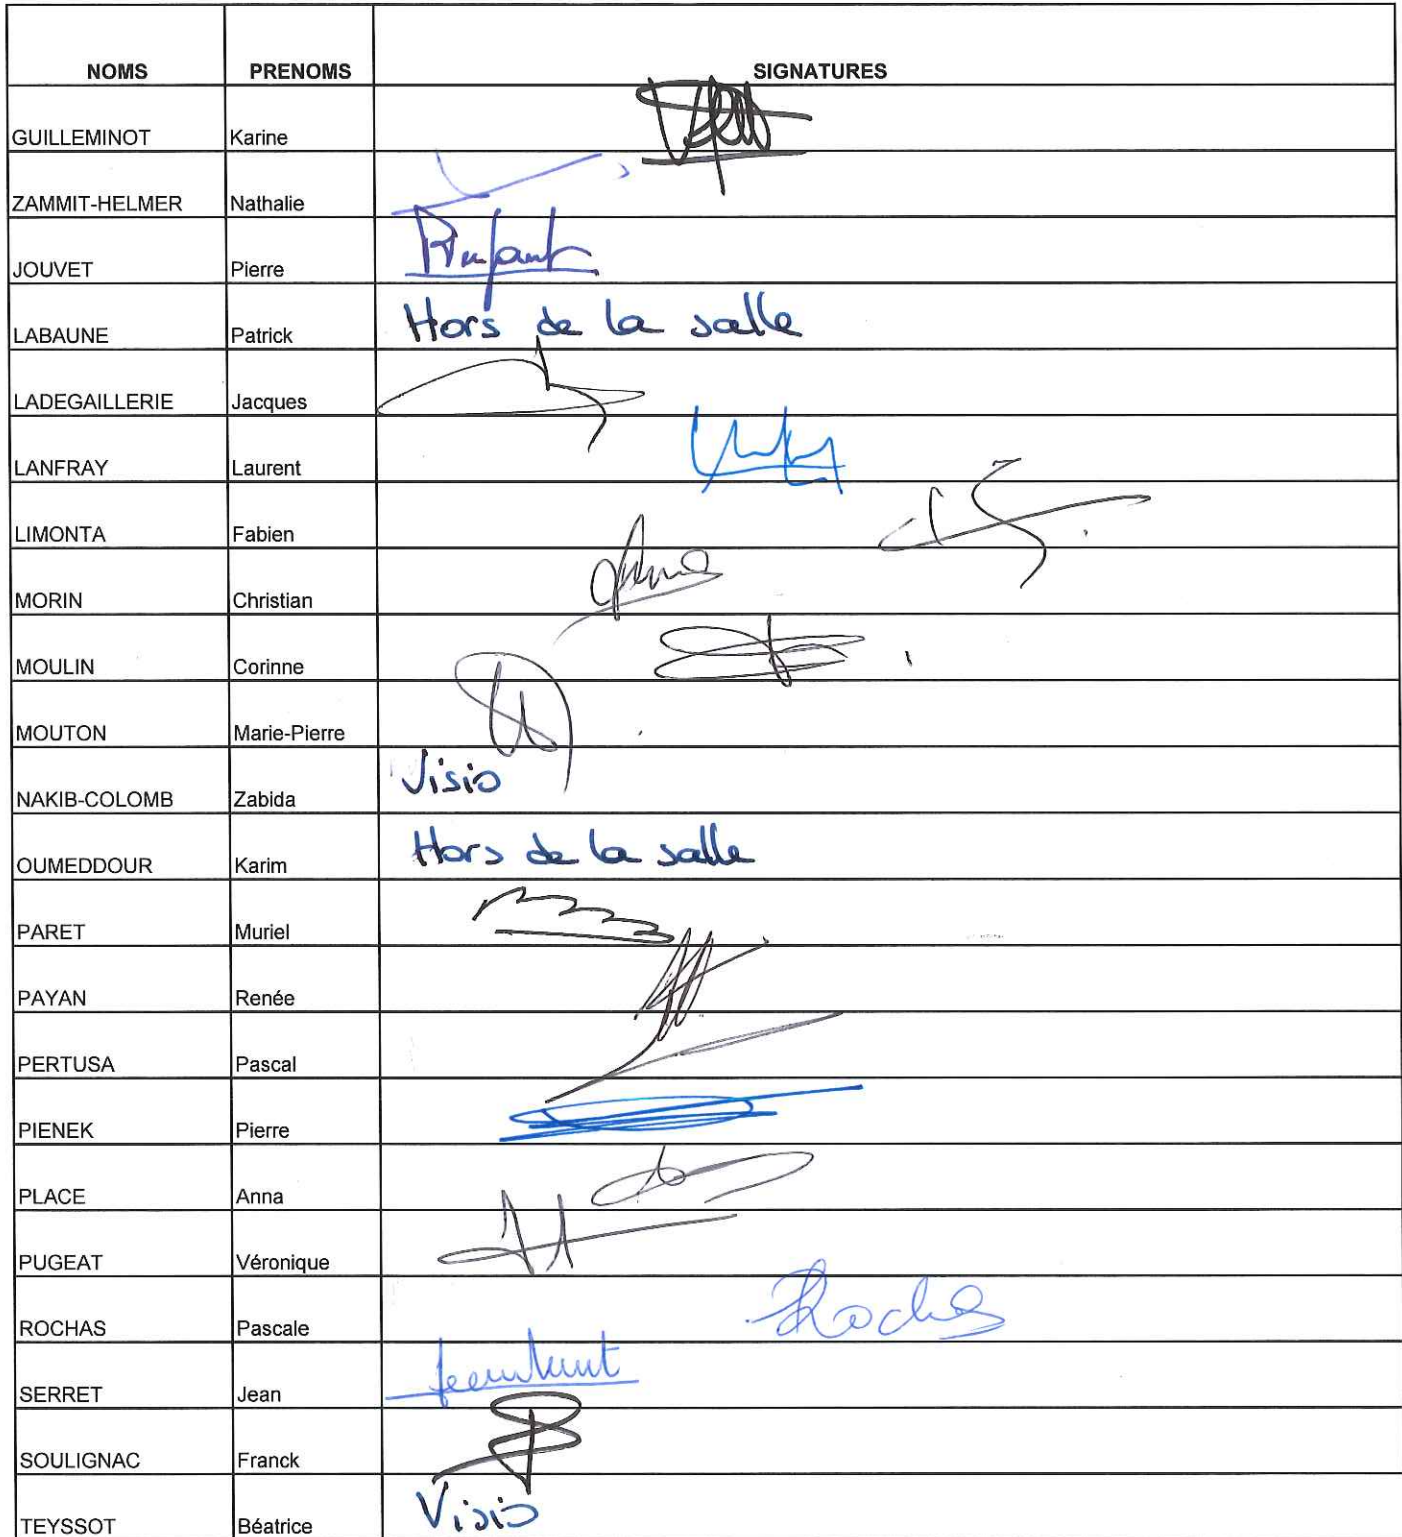 NOMS PRENOMS SIGNATURES
GUILLEMINOT Karine
ZAMMIT-HELMER Nathalie
JOUVET Pierre
LABAUNE Patrick Hors de la salle
LADEGAILLERIE Jacques
LANFRAY Laurent
LIMONTA Fabien
MORIN Christian
MOULIN Corinne
MOUTON Marie-Pierre
NAKIB-COLOMB Zabida Visio
OUMEDDOUR Karim Hors de la salle
PARET Muriel
PAYAN Renée
PERTUSA Pascal
PIENEK Pierre
PLACE Anna
PUGEAT Véronique
ROCHAS Pascale
SERRET Jean
SOULIGNAC Franck
TEYSSOT Béatrice Visio